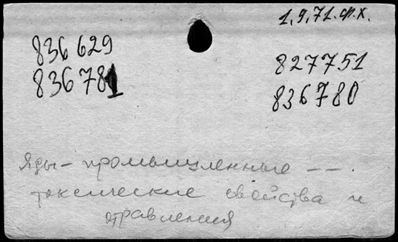 1.9.71.ф.х.
836 629
836781
827751
836780
Яды - промышленные --
токсические свойства и
отравления